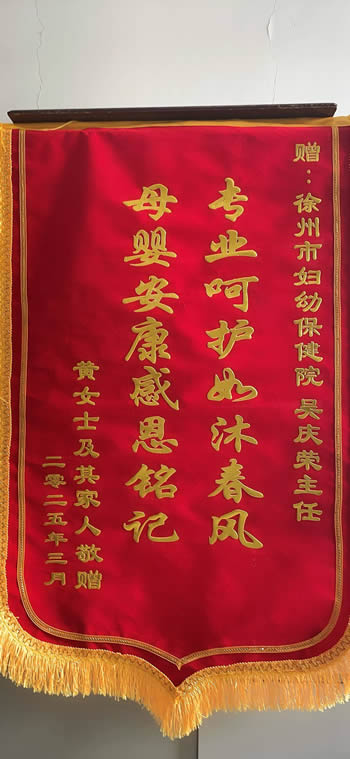 赠：徐州市妇幼保健院 吴庆荣主任
专业呵护如沐春风
母婴安康感恩铭记
黄女士及其家人敬赠
二零二五年三月